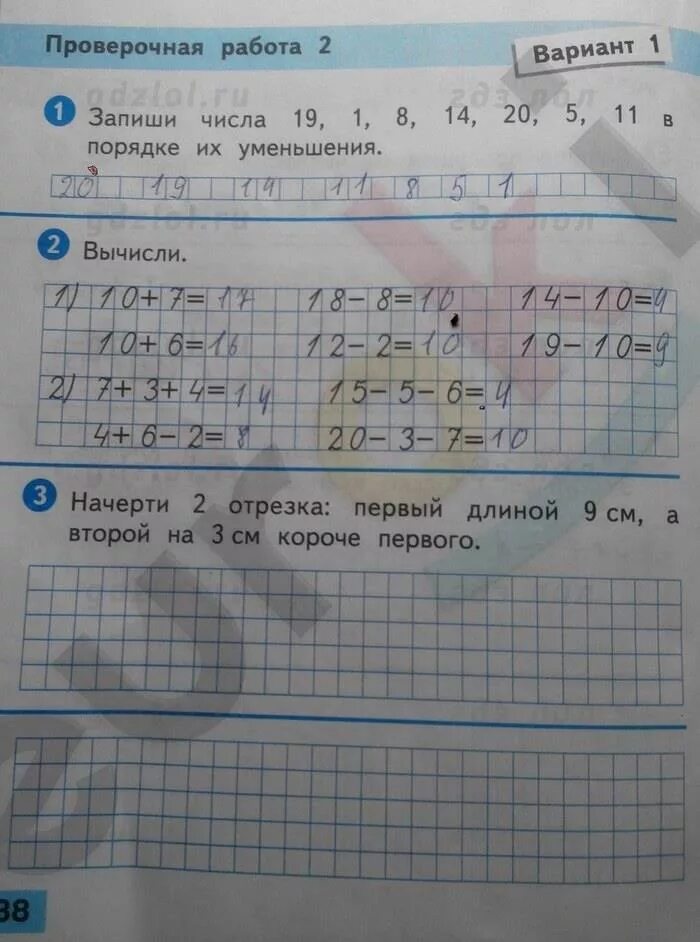 Проверочная работа 2
Вариант 1
1 Запиши числа 19, 1, 8, 14, 20, 5, 11 в
порядке их уменьшения.
20 19 14 11 8 5 1
2 Вычисли.
1) 10+7=17 18-8=10 14-10=4
10+6=16 12-2=10 19-10=9
2) 7+3+4=14 15-5-6=4
4+6-2=8 20-3-7=10
3 Начерти 2 отрезка: первый длиной 9 см, а
второй на 3 см короче первого.
38
euroki
gdzlol.ru